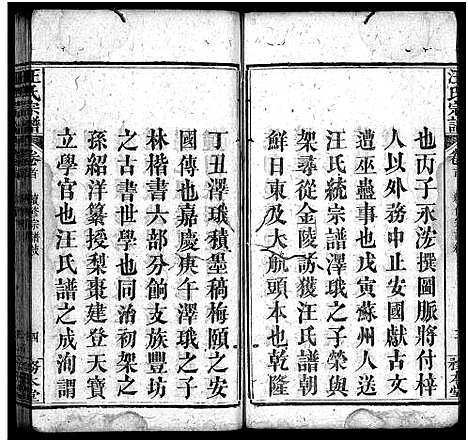 汪氏宗譜 卷首
也丙子永 撰圖脈將付梓
人以外務中止安國獻古文
遭巫蠱事也戊寅蘇州人送
汪氏統宗譜澤珴之子榮與
架尋從金陵訪獲汪氏譜朝
鮮日東及大航頭本也乾隆
丁丑澤珴積墨稿梅頤之安
國傳也嘉慶庚午澤珴之子
林楷書六部分餉支族豐坊
之古書世學也同治初架曾
孫紹洋纂授梨棗建登天寶
立學官也汪氏譜之成洵謂
汪氏宗譜 卷首 續修宗譜敘 四 務本堂